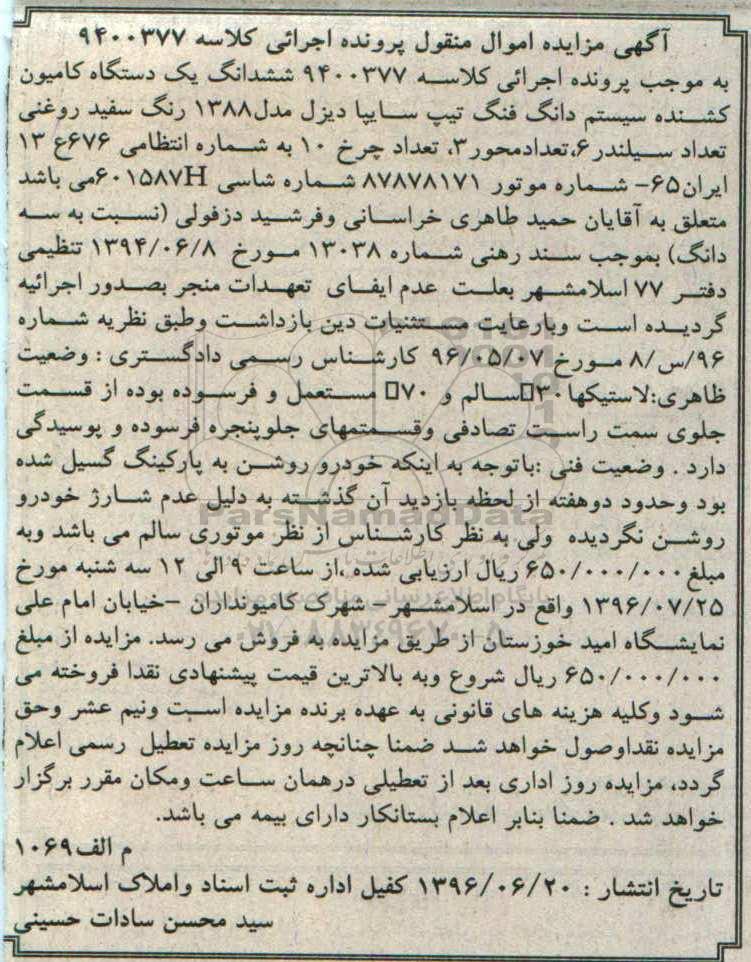 آگهی مزایده اموال منقول پرونده اجرائی کلاسه ۹۴۰۰۳۷۷
به موجب پرونده اجرائی کلاسه ۹۴۰۰۳۷۷ ششدانگ یک دستگاه کامیون
کشنده سیستم دانگ فنگ تیپ سایپا دیزل مدل۱۳۸۸ رنگ سفید روغنی
تعداد سیلندر۶،تعدادمحور۳، تعداد چرخ ۱۰ به شماره انتظامی ۶۷۶ع ۱۳
ایران۶۵- شماره موتور ۸۷۸۷۸۱۷۱ شماره شاسی ۶۰۱۵۸۷Hمی باشد
متعلق به آقایان حمید طاهری خراسانی وفرشید دزفولی (نسبت به سه
دانگ) بموجب سند رهنی شماره ۱۳۰۳۸ مورخ ۱۳۹۴/۰۶/۸ تنظیمی
دفتر ۷۷ اسلامشهر بعلت عدم ایفای تعهدات منجر بصدور اجرائیه
گردیده است وبارعایت مستثنیات دین بازداشت وطبق نظریه شماره
۹۶/س/۸ مورخ ۹۶/۰۵/۰۷ کارشناس رسمی دادگستری : وضعیت
ظاهری:لاستیکها۳۰▯سالم و ۷۰▯ مستعمل و فرسوده بوده از قسمت
جلوی سمت راست تصادفی وقسمتمهای جلوپنجره فرسوده و پوسیدگی
دارد . وضعیت فنی :باتوجه به اینکه خودرو روشن به پارکینگ گسیل شده
بود وحدود دوهفته از لحظه بازدید آن گذشته به دلیل عدم شارژ خودرو
روشن نگردیده ولی به نظر کارشناس از نظر موتوری سالم می باشد وبه
مبلغ۶۵۰/۰۰۰/۰۰۰ ریال ارزیابی شده ،از ساعت ۹ الی ۱۲ سه شنبه مورخ
۱۳۹۶/۰۷/۲۵ واقع در اسلامشهر- شهرک کامیونداران -خیابان امام علی
نمایشگاه امید خوزستان از طریق مزایده به فروش می رسد. مزایده از مبلغ
۶۵۰/۰۰۰/۰۰۰ ریال شروع وبه بالاترین قیمت پیشنهادی نقدا فروخته می
شود وکلیه هزینه های قانونی به عهده برنده مزایده است ونیم عشر وحق
مزایده نقداوصول خواهد شد ضمنا چنانچه روز مزایده تعطیل رسمی اعلام
گردد، مزایده روز اداری بعد از تعطیلی درهمان ساعت ومکان مقرر برگزار
خواهد شد . ضمنا بنابر اعلام بستانکار دارای بیمه می باشد.
م الف۱۰۶۹
تاریخ انتشار : ۱۳۹۶/۰۶/۲۰ کفیل اداره ثبت اسناد واملاک اسلامشهر
سید محسن سادات حسینی
ParsNamadData